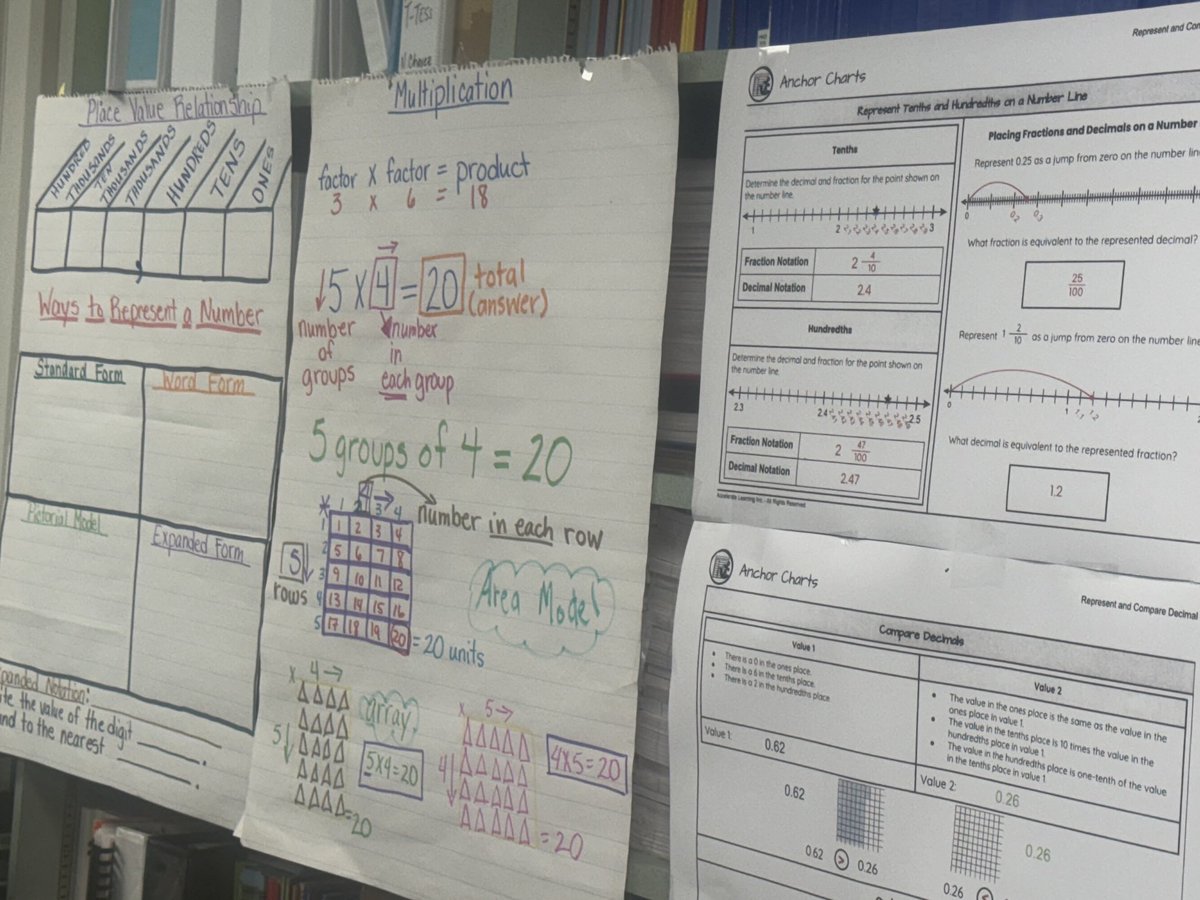 T-TESS
Choice
Place Value Relationship
HUNDRED THOUSANDS
TEN THOUSANDS
THOUSANDS
HUNDREDS
TENS
ONES
Ways to Represent a Number
Standard Form
Word Form
Pictorial Model
Expanded Form
panded Notation:
ite the value of the digit
nd to the nearest
Multiplication
factor x factor = product
3 x 6 = 18
5 x 4 = 20 total (answer)
number of groups
number in each group
5 groups of 4 = 20
4
number in each row
1 2 3 4
1 1 2 3 4
2 5 6 7 8
3 9 10 11 12
4 13 14 15 16
5 17 18 19 20
5 rows
= 20 units
Area Model
x 4
5
array
5x4=20
=20
x 5
4
4x5=20
=20
Anchor Charts
Represent and Con
Represent Tenths and Hundredths on a Number Line
Tenths
Determine the decimal and fraction for the point shown on
the number line.
1 2 3
Fraction Notation 2 4/10
Decimal Notation 2.4
Hundredths
Determine the decimal and fraction for the point shown on
the number line.
2.3 2.4 2.5
Fraction Notation 2 47/100
Decimal Notation 2.47
Accelerate Learning Inc. - All Rights Reserved
Placing Fractions and Decimals on a Number
Represent 0.25 as a jump from zero on the number lin
0 0.2 0.3
What fraction is equivalent to the represented decimal?
25/100
Represent 1 2/10 as a jump from zero on the number line
0 1 1.1 1.2
What decimal is equivalent to the represented fraction?
1.2
Anchor Charts
Represent and Compare Decimal
Compare Decimals
Value 1
There is a 0 in the ones place.
There is a 6 in the tenths place.
There is a 2 in the hundredths place
Value 1: 0.62
Value 2
The value in the ones place is the same as the value in the
ones place in value 1.
The value in the tenths place is 10 times the value in the
hundredths place in value 1.
The value in the hundredths place is one-tenth of the value
in the tenths place in value 1.
Value 2: 0.26
0.62
0.26
0.62 > 0.26
0.26 <